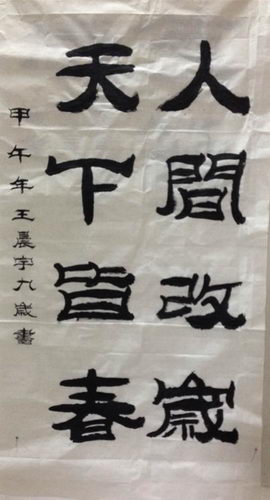 人間改歲
天下皆春
甲午年王晨宇九歲書